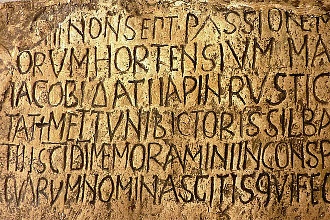 IIII NON SEPT PASSIONE
ORVM HORTENSIVM MA
IACOBI DATI IAPIN RVSTIC
TAT METTVNI BICTORIS SILBA
TII SCI DI MEMORAMINI IN CONSP
NOMINA SCITIS QVI FEC